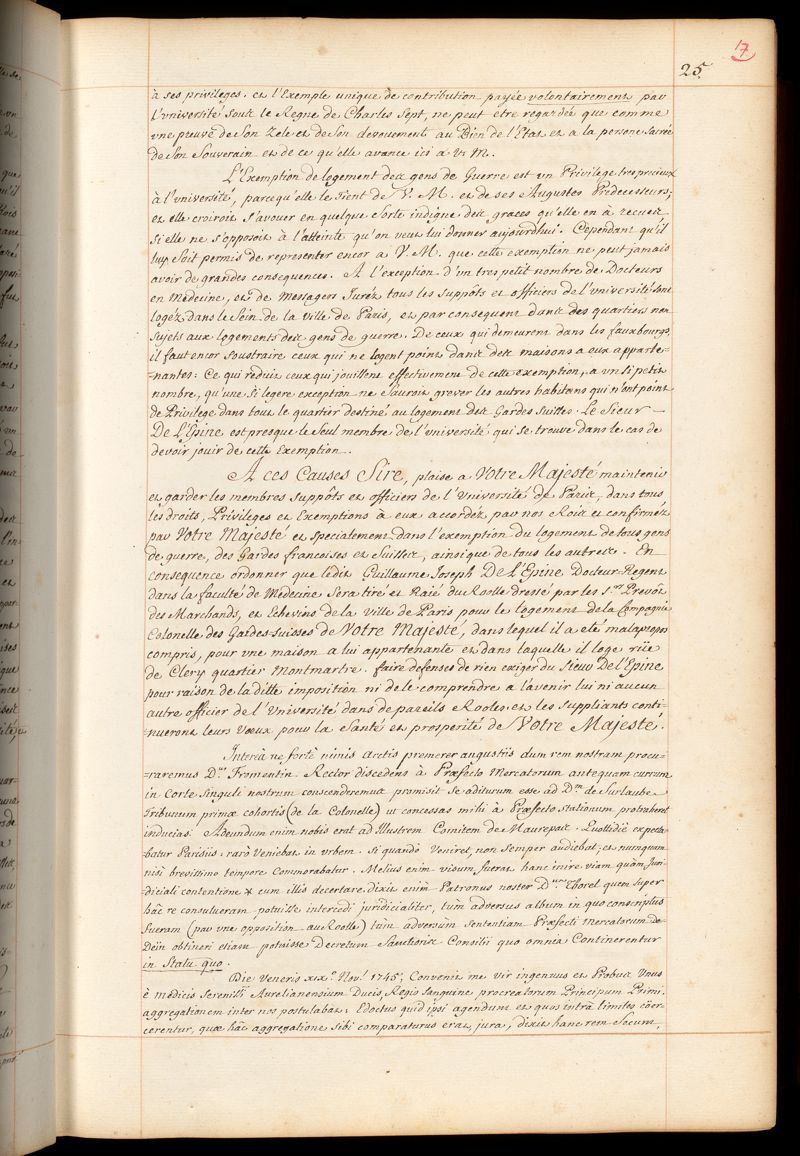 17
25.
à ses privileges. et l'Exemple unique de contribution payée volontairement par
l'université sous le Regne de Charles Sept, ne peut etre regardée que comme
une preuve de Son Zele et de Son devouement au Bien de l'Etat et a la persone Sacrée
de Son Souverain et de ce qu'elle avance ici a V. M.
L'Exemption de logement des gens de Guerre est un Privilege tres precieux
à l'université, parcequ'elle le Tient de V. M. et de ses Augustes Predecesseurs;
et elle croiroit s'avouer en quelque Sorte indigne des graces qu'elle en à recues
Si elle ne s'opposoit à l'atteinte qu'on veut lui donner aujourdhui. Cependant qu'il
luy Soit permis de representer encor a V. M. que cette exemption ne peut jamais
avoir de grandes consequences. A l'exception d'un tres petit nombre de Docteurs
en Medecine, et de Messagers Juréz tous les suppôts et officiers de l'université sont
logéz dans le Sein de la ville de Paris, et par consequent dans des quartiers non
Sujets aux logements des gens de guerre. De ceux qui demeurent dans les fauxbourgs,
il faut encor Soustraire ceux qui ne logent point dans des maisons a eux apparte-
-nantes: Ce qui reduit ceux qui jouissent effectivement de cette exemption, a un si petit
nombre, qu'une Si legere exception ne Sauroit grever les autres habitans qui n'ont point
de Privilege dans tout le quartier destiné au logement des Gardes Suisses. Le Sieur
De L'Epine est presque le Seul membre de l'université qui se trouve dans le cas de
devoir jouir de cette Exemption.
A ces Causes Sire, plaise a Votre Majesté maintenir
et garder les membres suppôts et officiers de l'Université de Paris, dans tous
les droits, Privileges et Exemptions à eux accordéz par nos Rois et confirméz
par Votre Majesté et specialement dans l'exemption du logement de tous gens
de guerre, des Gardes francoises et Suisses, ainsi que de tous les autres. En
consequence ordonner que ledit Guillaume Joseph De L'Epine Docteur-Regent
dans la faculté de Medecine Sera tiré et Raié du Roolle dressé par les S.rs Prevôt
des Marchands, et Echevins de la Ville de Paris pour le logement de la Compagnie
Colonelle des Gardes-Suisses de Votre Majesté, dans lequel il a eté mal apropos
compris, pour une maison a lui appartenante et dans laquelle il loge rüe
de Clery quartier Montmartre. faire defenses de rien exiger du Sieur De l'Epine
pour raison de la ditte imposition ni de le comprendre a l'avenir lui ni aucun
autre officier de l'Université dans de pareils Rooles et les Suppliants conti-
-nueront leurs Voeux pour la Santé et prosperité de Votre Majesté.
Intereà ne fortè nimis arctis premerer angustiis dum rem nostram procu-
-raremus D.nus Fromentin Rector discedens à Præfecto Mercatorum antequam currum
in Corte Singuli nostrum conscenderemus promisit se aditurum esse ad D.m de Surlaube
Tribunum primæ cohortis (de la Colonelle) ut concessas mihi à Præfecto Stationum protraheret
inducias. Adeundum enim nobis erat ad Illustrem Comitem de Maurepas. Quottidiè expecta-
batur Parisiis; rarò Veniebat in urbem. Si quandò Veniret, non Semper audiebat; et nunquam
nisi brevissimo tempore Commorabatur. Melius enim visum fuerat hanc inire viam quàm Juri-
diciali contentione cum illis decertare. dixit enim Patronus noster D.nus Thorel quem super
hâc re consulueram potuisse intercedi juridicialiter, tùm adversus album in quo conscriptus
fueram (par une opposition au Roolle) tùm adversùm Sententiam Præfecti Mercatorum de-
Dein obtineri etiam potuisse Decretum Sanctioris Consilii quo omnia Continerentur
in Statu quo.
Die Veneris XIX.a Nov.is 1745; Convenit me vir ingenuus et Probus Unus
è medicis Sereniss.i Aurelianensium Ducis, Regio Sanguine procreatorum Principum Primi.
aggregationem inter nos postulabat; Edoctus quid ipsi agendum et quos intrà limites coër-
cerentur, quæ hâc aggregatione sibi comparaturus erat, jura, dixit hanc rem Secum,